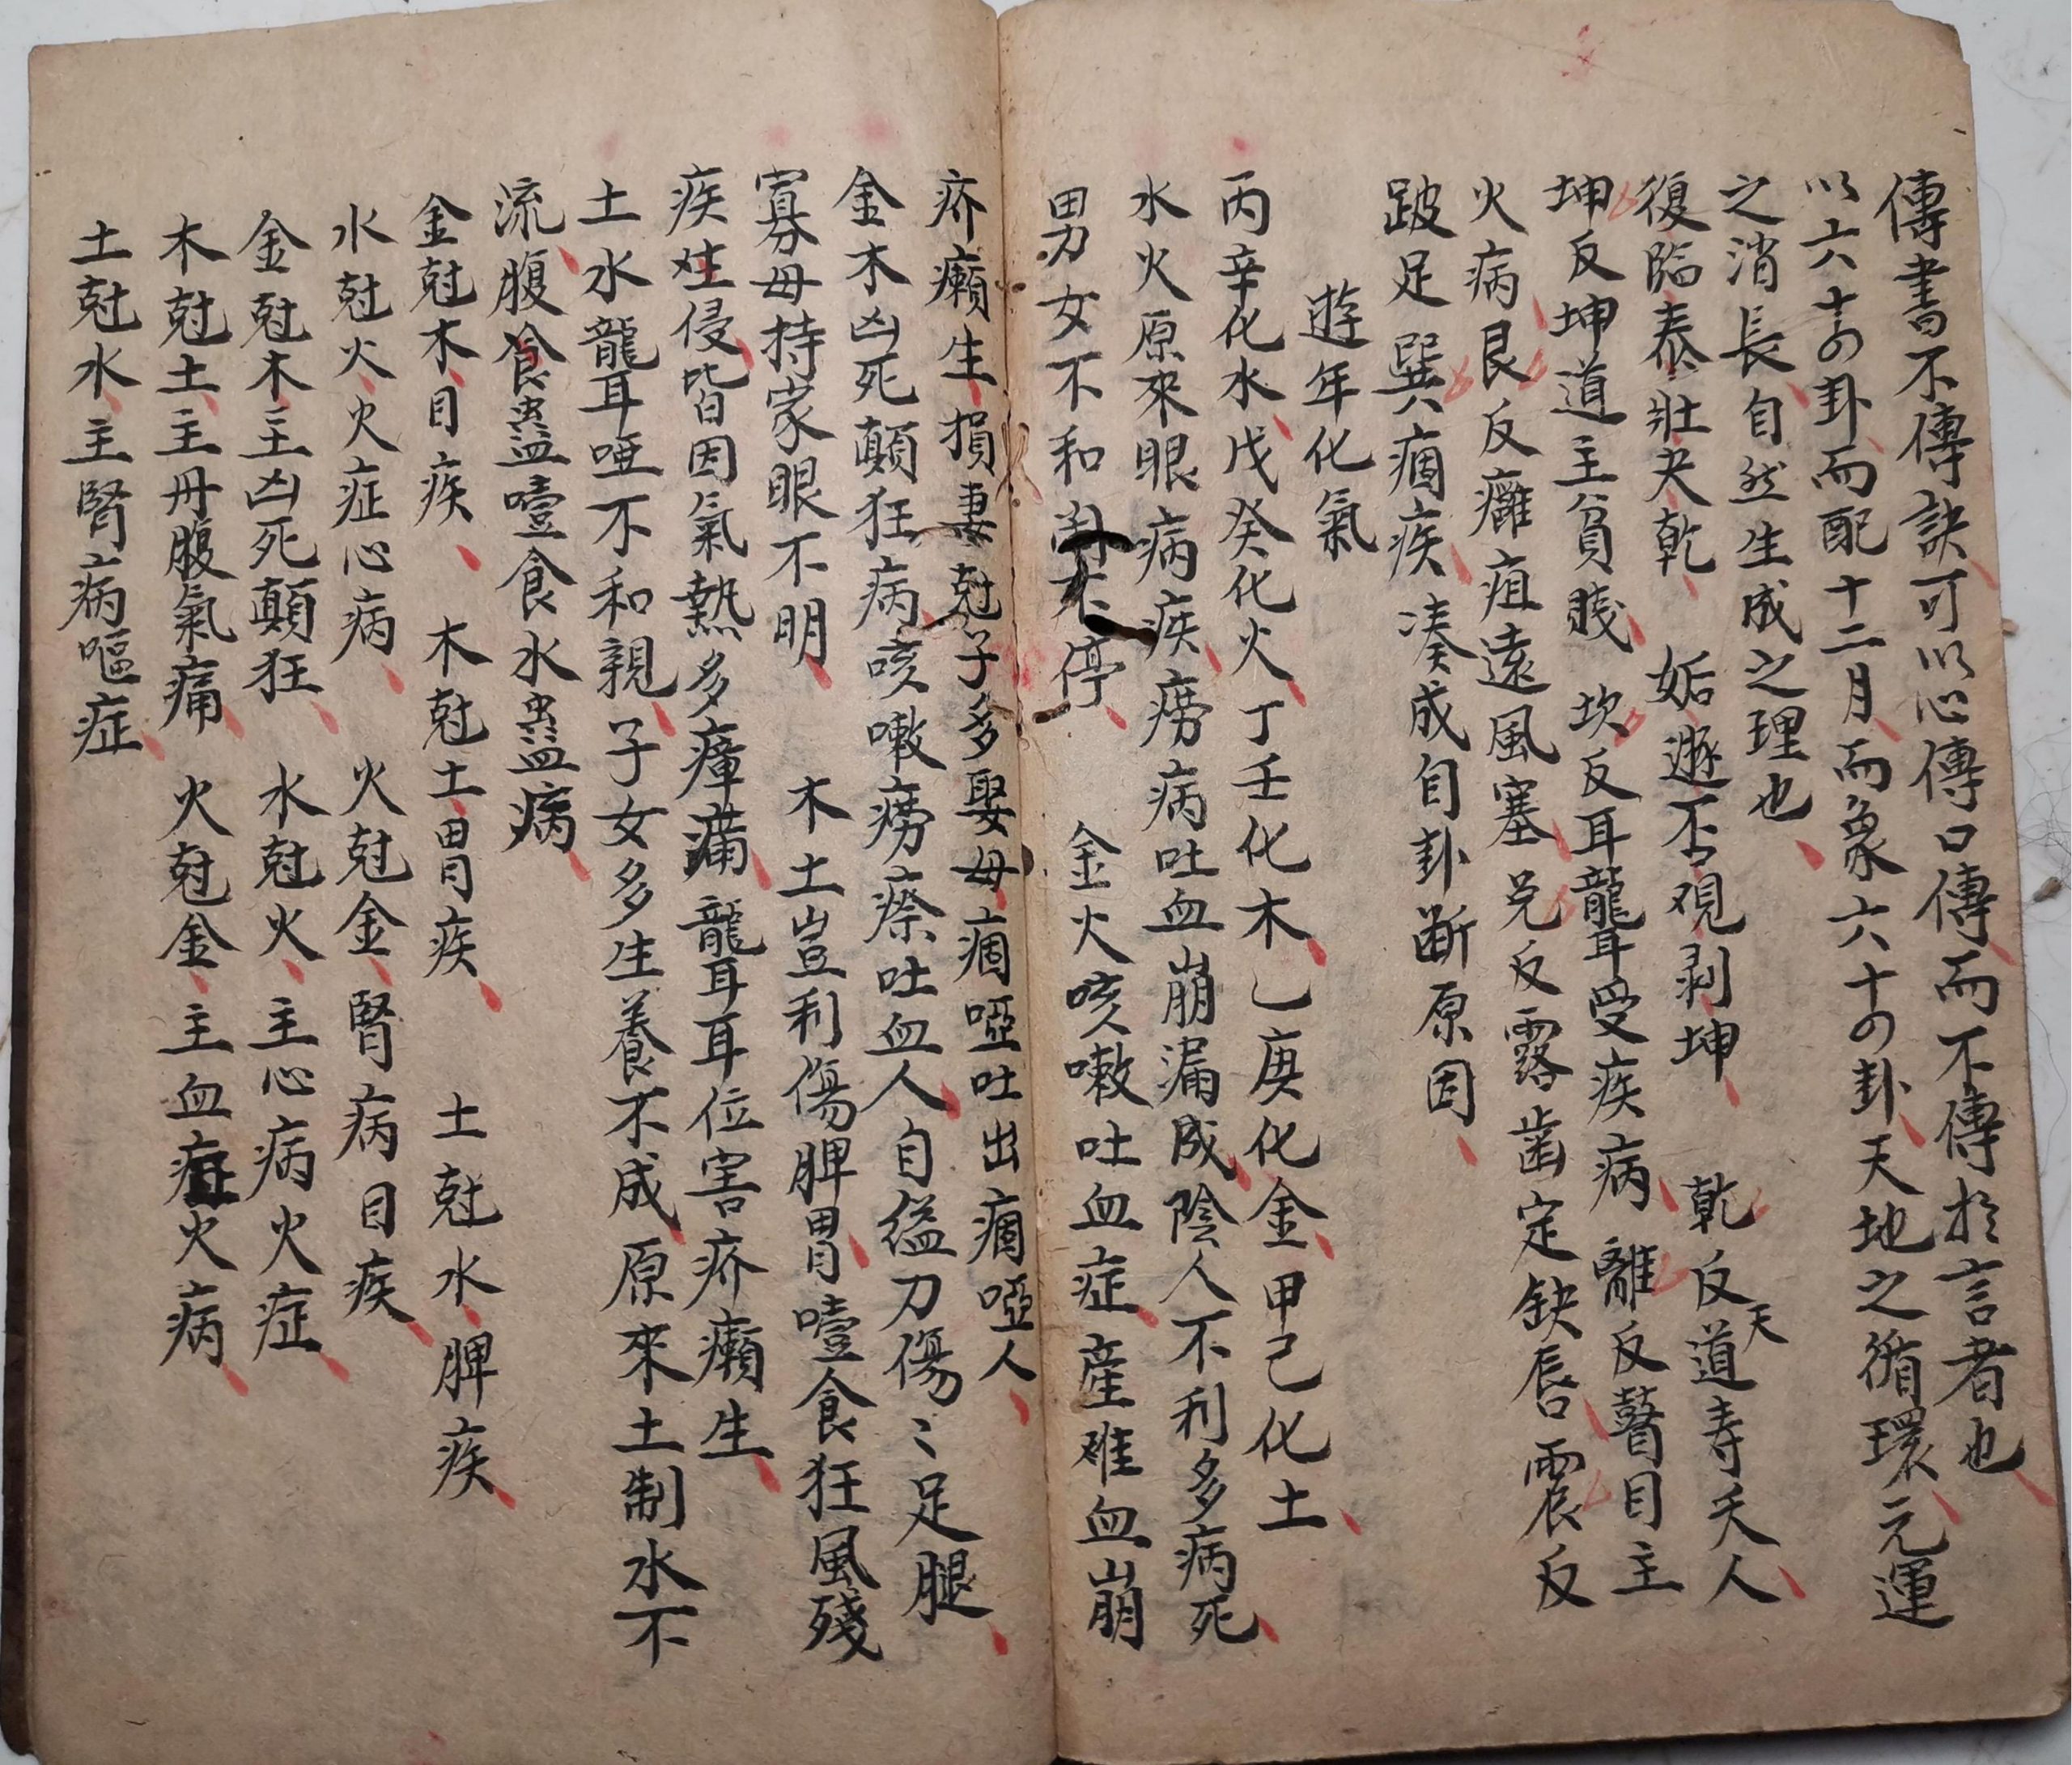 傳書不傳訣可以心傳口傳而不傳於言者也
以六十四卦而配十二月而象六十四卦天地之循環元運
之消長自然生成之理也
復臨泰壯夬乾 姤遯否观剥坤 乾反天道寿夭人
坤反坤道主貧賎 坎反耳聾耳受疾病 離反瞽目主
火病艮反癱疽遠風塞兑反露歯定缺唇震反
跛足巽痼疾凑成自卦断原因
遊年化氣
丙辛化水戊癸化火丁壬化木乙庚化金甲己化土
水火原來眼病疾痨病吐血崩漏成陰人不利多病死
男女不和停 金火咳嗽吐血症產难血崩
疥癩生損妻尅子多娶毋痼啞吐出痼啞人
金木凶死顛狂病咳嗽痨瘵吐血人自縊刀傷〻足腿
寡毋持家眼不明 木土豈利傷脾胃噎食狂風殘
疾姓侵皆因氣熱多瘴滿聾耳位害疥癩生
土水聾啞不和親子女多生養不成原來土制水不
流腹食蠱噎食水蠱病
金尅木目疾 木尅土胃疾 土尅水脾疾
水尅火火症心病 火尅金腎病目疾
金尅木主凶死顛狂 水尅火主心病火症
木尅土主丹腹氣痛 火尅金主血火病
土尅水主腎病嘔症